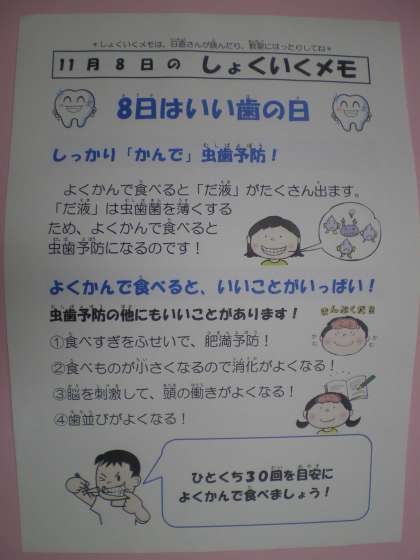 ＊しょくいくメモは、日直さんが読んだり、教室にはったりしてね＊
11月8日の しょくいくメモ
8日はいい歯の日
しっかり「かんで」虫歯予防！
よくかんで食べると「だ液」がたくさん出ます。
「だ液」は虫歯菌を薄くする
ため、よくかんで食べると
虫歯予防になるのです！
よくかんで食べると、いいことがいっぱい！
虫歯予防の他にもいいことがあります！
まんぷくだ
①食べすぎをふせいで、肥満予防！
②食べものが小さくなるので消化がよくなる！
③脳を刺激して、頭の働きがよくなる！
④歯並びがよくなる！
ひとくち３０回を目安に
よくかんで食べましょう！